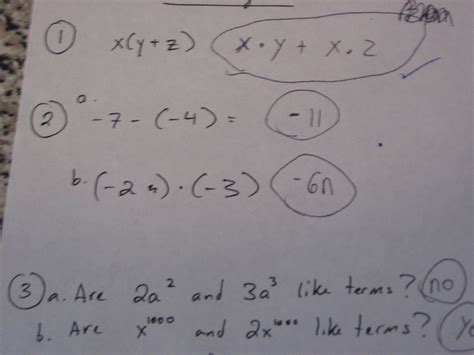 ① x(y+z) x·y + x·z
② a. -7 - (-4) = -11
b. (-2n)·(-3) -6n
③ a. Are 2a² and 3a³ like terms? no
b. Are x¹⁰⁰⁰ and 2x¹⁰⁰⁰ like terms?